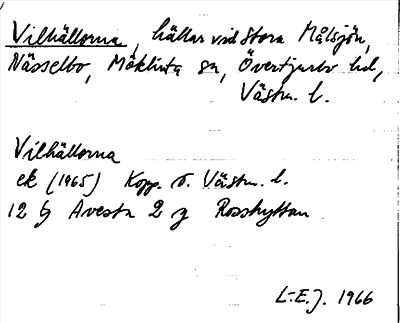 Vilhällorna, hällar vid Stora Målsjön,
Nässelbo, Möklinta sn, Övertjurbo hd,
Västm. l.
Vilhällorna
ek (1965) Kopp. o. Västm. l.
12 G Avesta 2 g Rosshyttan
L-E.J. 1966